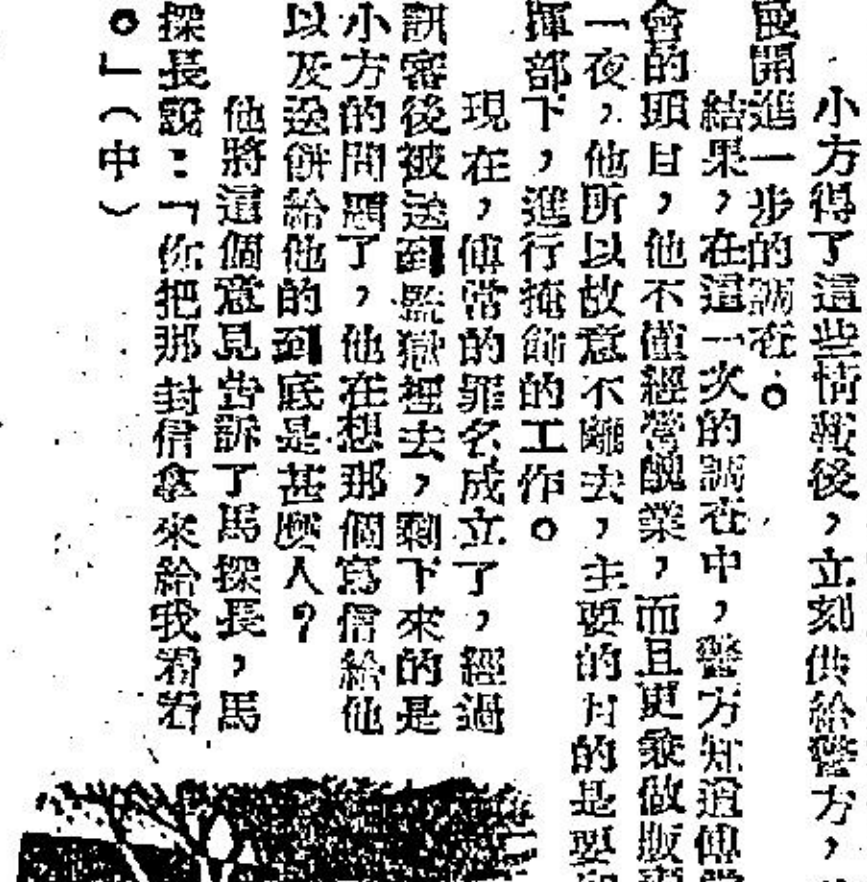 小方得了這些情報後，立刻供給警方，
展開進一步的調查。
結果，在這一次的調查中，警方知道傅常
會的頭目，他不僅經營醜業，而且更兼做販
一夜，他所以故意不離去，主要的目的是要
揮部下，進行掩飾的工作。
現在，傅常的罪名成立了，經過
訊審後被送到監獄裡去，剩下來的是
小方的問題了，他在想那個寫信給他
以及送餅給他的到底是甚麼人？
他將這個意見告訴了馬探長，馬
探長說：「你把那封信拿來給我看看
。」（中）